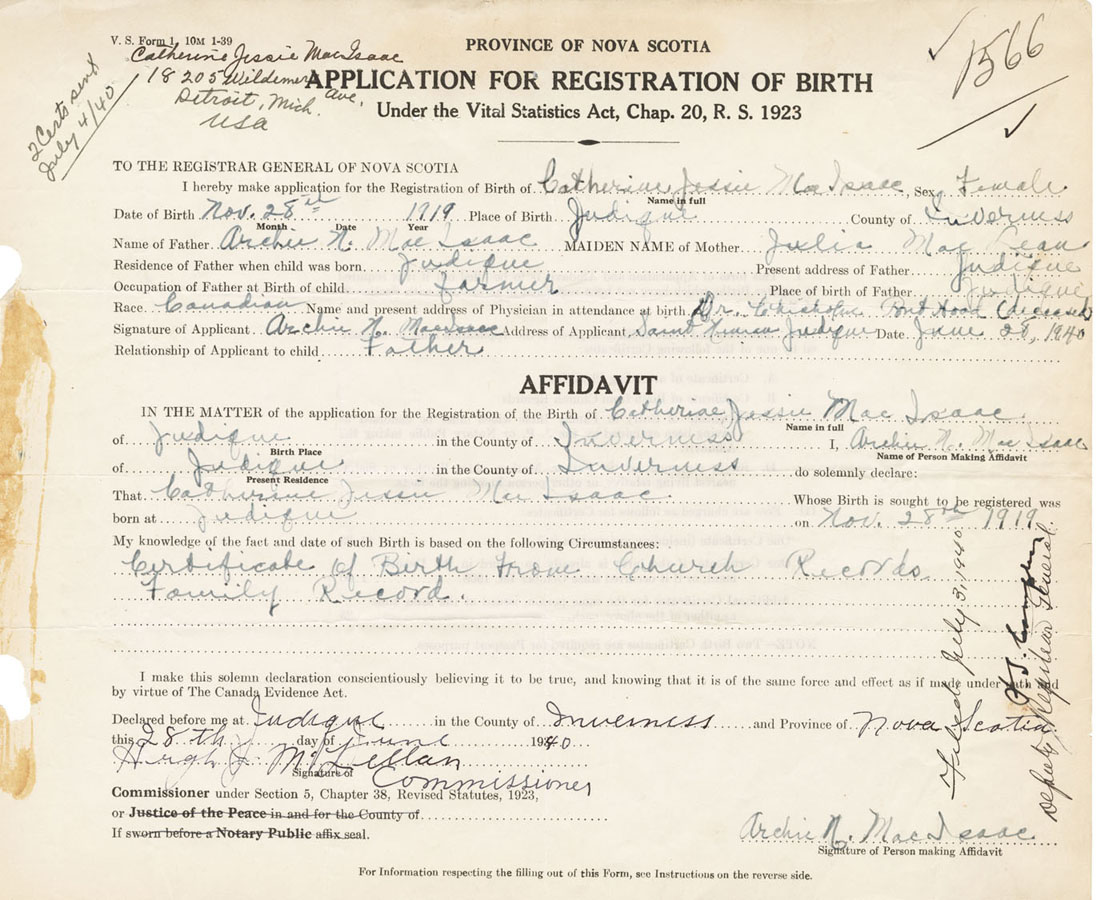 V. S. Form 1, 10M 1-39
Catherine Jessie MacIsaac
18205 Wildemere Ave.
Detroit, Mich.
USA
2 Certs sent
July 4/40
PROVINCE OF NOVA SCOTIA
1566
APPLICATION FOR REGISTRATION OF BIRTH
Under the Vital Statistics Act, Chap. 20, R. S. 1923
TO THE REGISTRAR GENERAL OF NOVA SCOTIA
I hereby make application for the Registration of Birth of Catherine Jessie MacIsaac, Sex Female
Name in full
Date of Birth Nov. 28th 1919 Place of Birth Judique County of Inverness
Month Date Year
Name of Father Archie N. MacIsaac MAIDEN NAME of Mother Julia MacLean
Residence of Father when child was born Judique Present address of Father Judique
Occupation of Father at Birth of child Farmer Place of birth of Father Judique
Race Canadian Name and present address of Physician in attendance at birth Dr. Chisholm Port Hood (deceased)
Signature of Applicant Archie N. MacIsaac Address of Applicant Judique Date June 28, 1940
Relationship of Applicant to child Father
AFFIDAVIT
IN THE MATTER of the application for the Registration of the Birth of Catherine Jessie MacIsaac
Name in full
of Judique in the County of Inverness I, Archie N. MacIsaac
Birth Place Name of Person Making Affidavit
of Judique in the County of Inverness do solemnly declare:
Present Residence
That Catherine Jessie MacIsaac Whose Birth is sought to be registered was
born at Judique on Nov. 28th 1919
My knowledge of the fact and date of such Birth is based on the following Circumstances:
Certificate of Birth From Church Records
Family Record.
I make this solemn declaration conscientiously believing it to be true, and knowing that it is of the same force and effect as if made under oath and
by virtue of The Canada Evidence Act.
Declared before me at Judique in the County of Inverness and Province of Nova Scotia
this 28th day of June 1940
Hugh J. McLellan
Signature of Commissioner
Commissioner under Section 5, Chapter 38, Revised Statutes, 1923,
or Justice of the Peace in and for the County of
If sworn before a Notary Public affix seal.
Archie N. MacIsaac
Signature of Person making Affidavit
For Information respecting the filling out of this Form, see Instructions on the reverse side.
Filed July 3, 1940
Deputy Registrar General